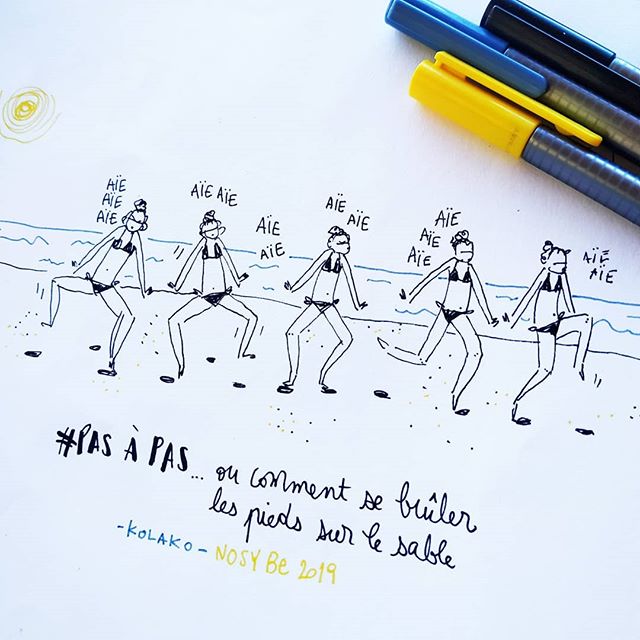 AÏE
AÏE
AÏE
AÏE AÏE
AÏE
AÏE
AÏE
AÏE
AÏE
AÏE
AÏE
AÏE
AÏE
#PAS À PAS... ou comment se brûler
les pieds sur le sable
-KOLAKO- NOSY BE 2019